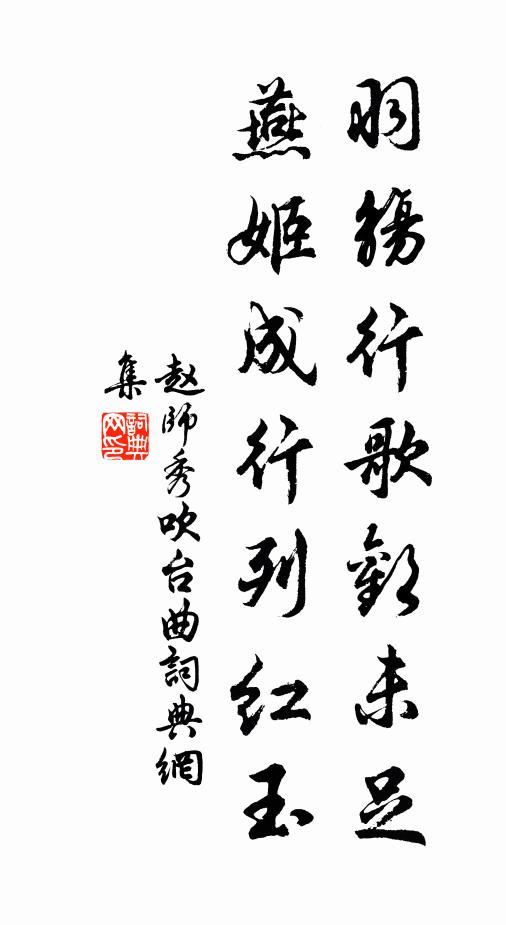 羽觴行歌歡未足
燕姬成行列紅玉
赵師秀吹台曲詞典網
集
詞典
网印